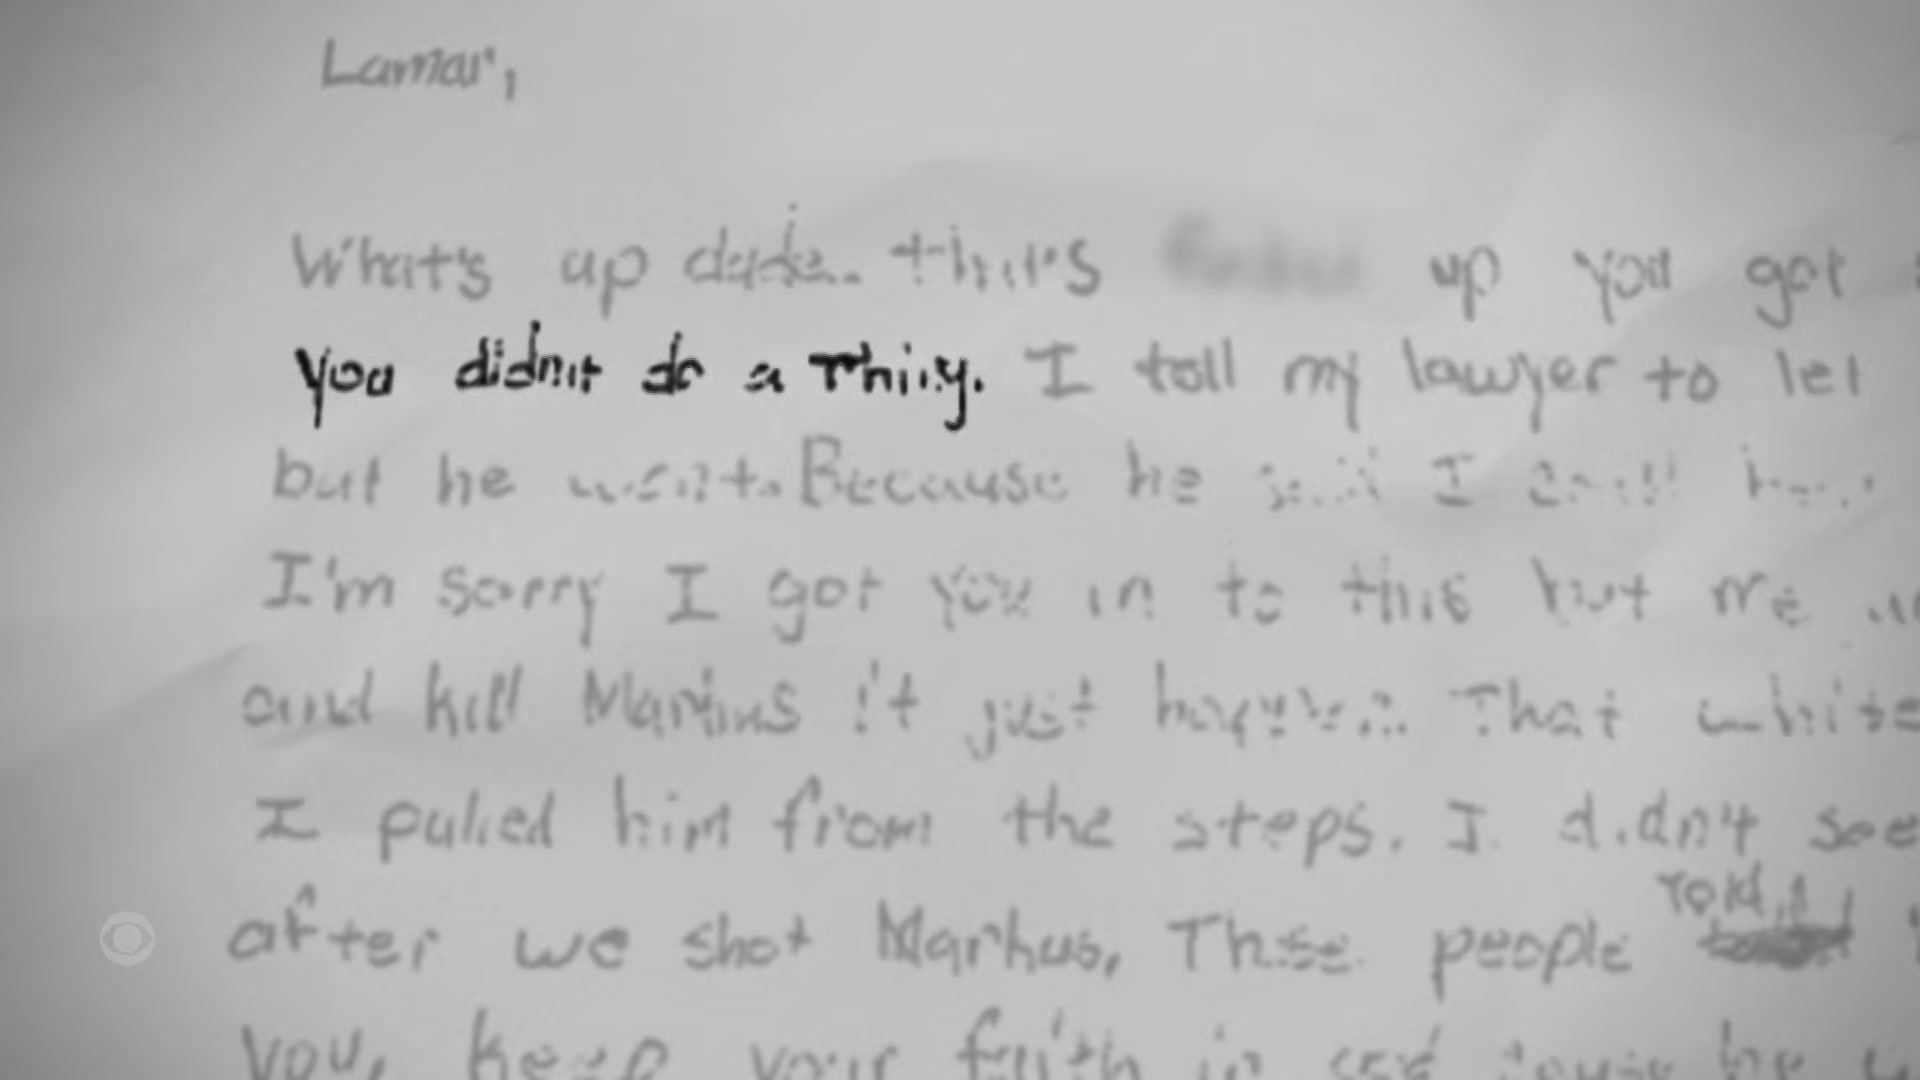 Lamar,
What's up dude.. this up you got
you didn't do a Thing. I toll my lawyer to let
but he won't. Because he said I I
I'm sorry I got you in to this but me
and kill Markus it just happen. That white
I pulled him from the steps. I didn't see
Told
after we shot Markus, Thse people
you, keep your faith in god cause he